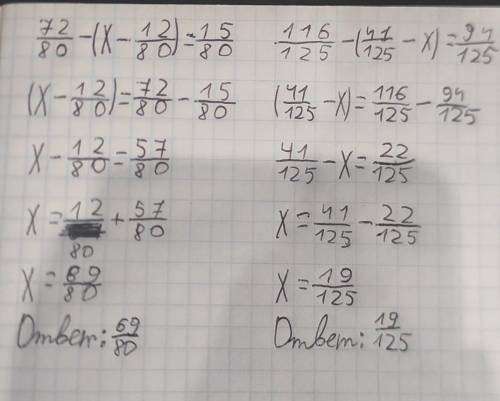 72/80 - (x - 12/80) = 15/80
(x - 12/80) = 72/80 - 15/80
x - 12/80 = 57/80
x = 12/80 + 57/80
x = 69/80
Ответ: 69/80
116/125 - (41/125 - x) = 94/125
(41/125 - x) = 116/125 - 94/125
41/125 - x = 22/125
x = 41/125 - 22/125
x = 19/125
Ответ: 19/125